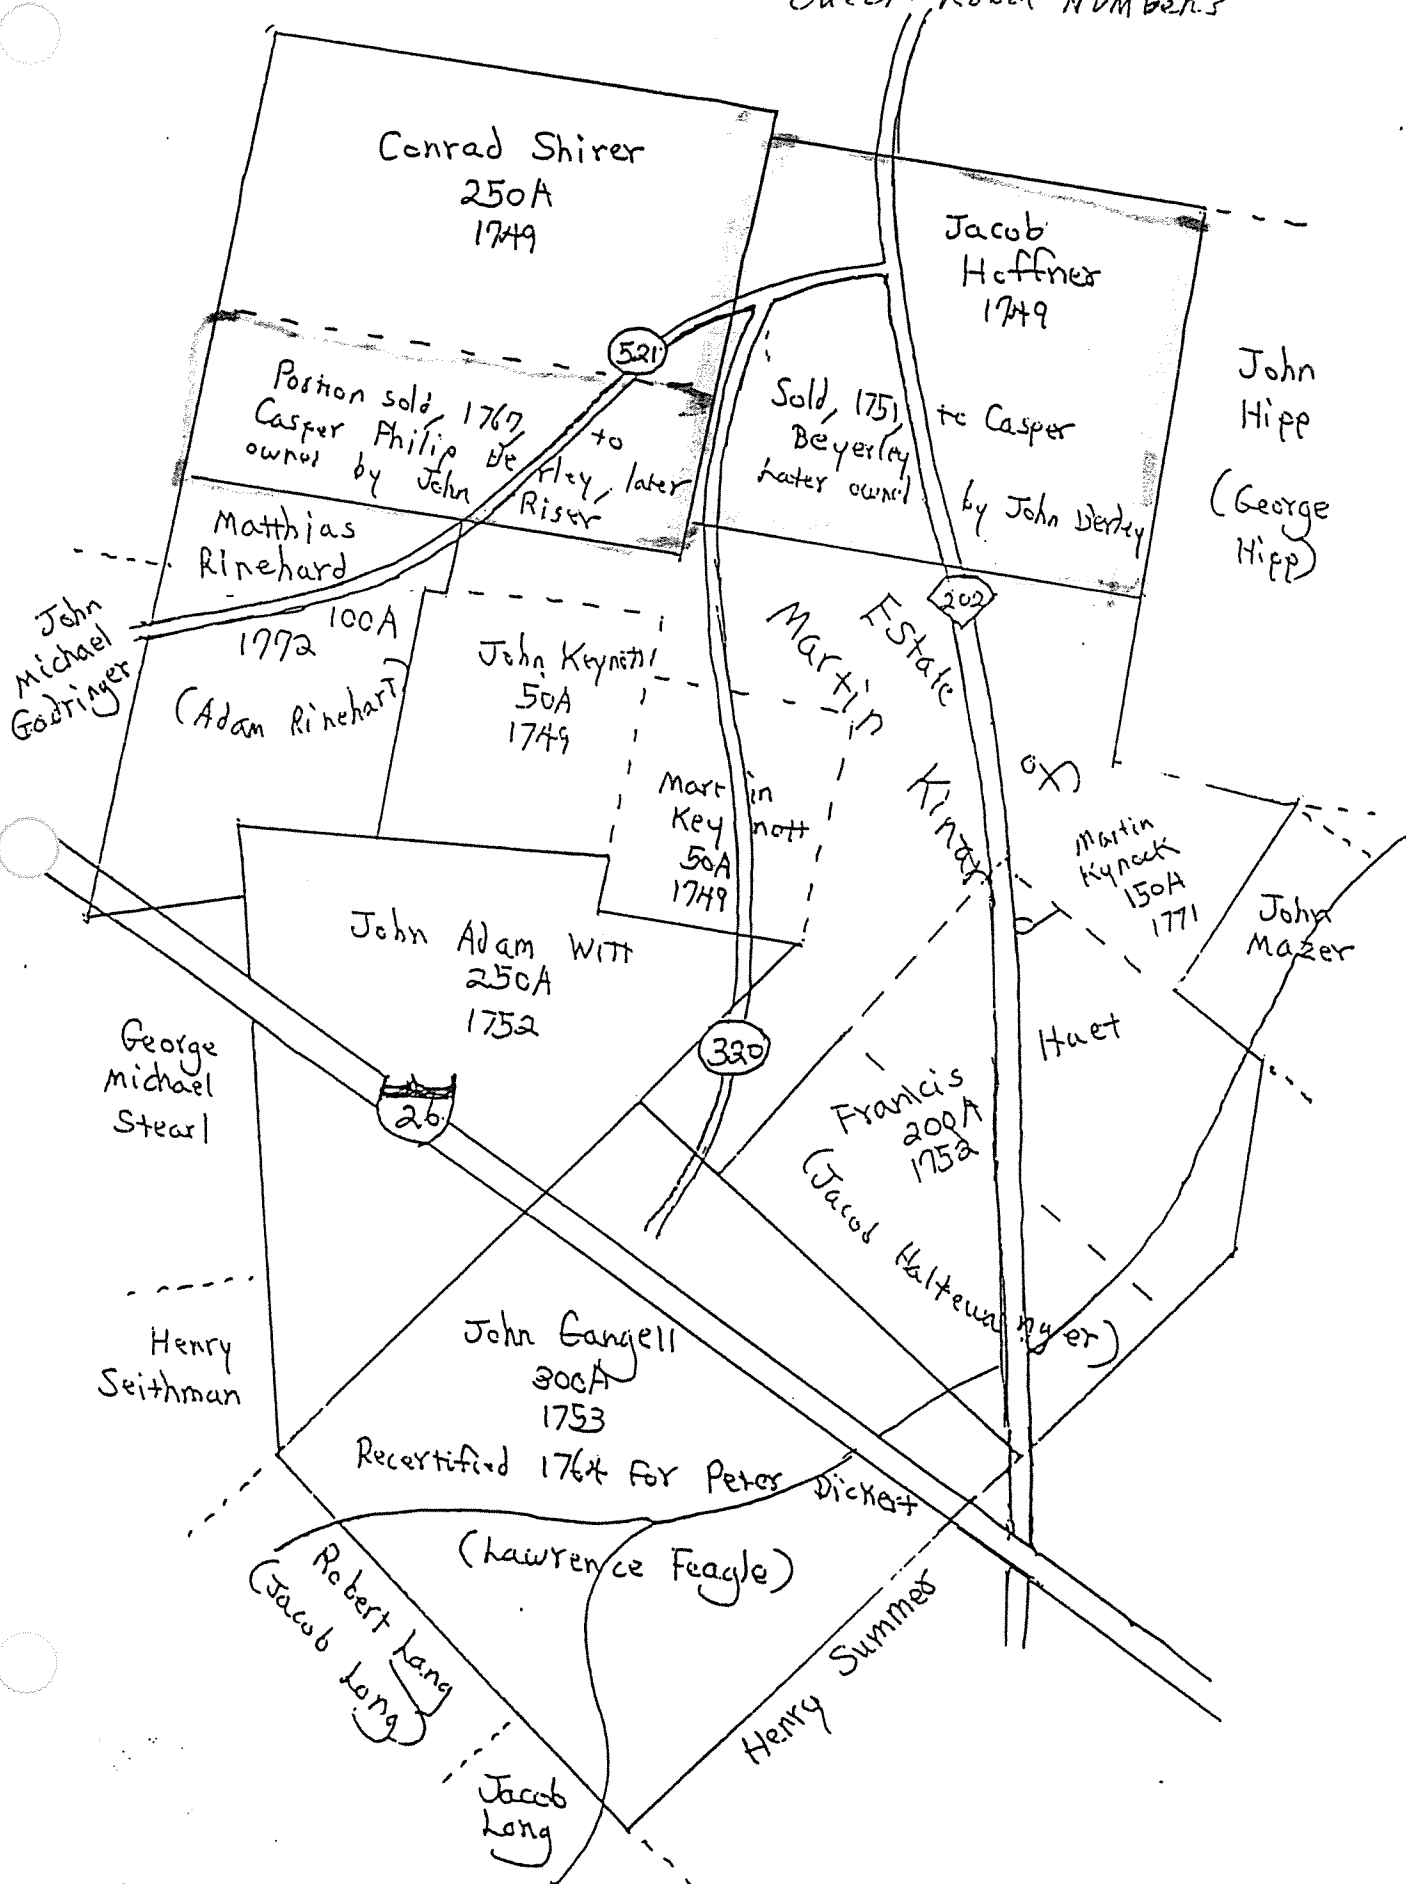 Road Numbers
Conrad Shirer
250A
1749
Jacob
Hoffner
1749
John
Hipp
(George
Hipp)
521
Portion sold, 1767, to
Casper Philip Derley, later
owned by John Riser
Sold, 1751, to Casper
Beyerley
Later owned by John Derley
Matthias
Rinehard
100A
1772
(Adam Rinehart)
John
Michael
Godringer
John Keynott
50A
1749
202
Estate of
Martin Kinar
Martin
Keynott
50A
1749
Martin
Kynock
150A
1771
John
Mazer
John Adam Witt
250A
1752
320
George
Michael
Stearl
26
Francis Huet
200A
1752
(Jacob Haltewanger)
Henry
Seithman
John Gangell
300A
1753
Recertified 1764 For Peter Dickert
(Lawrence Feagle)
Robert Lang
(Jacob Long)
Henry Summer
Jacob
Long